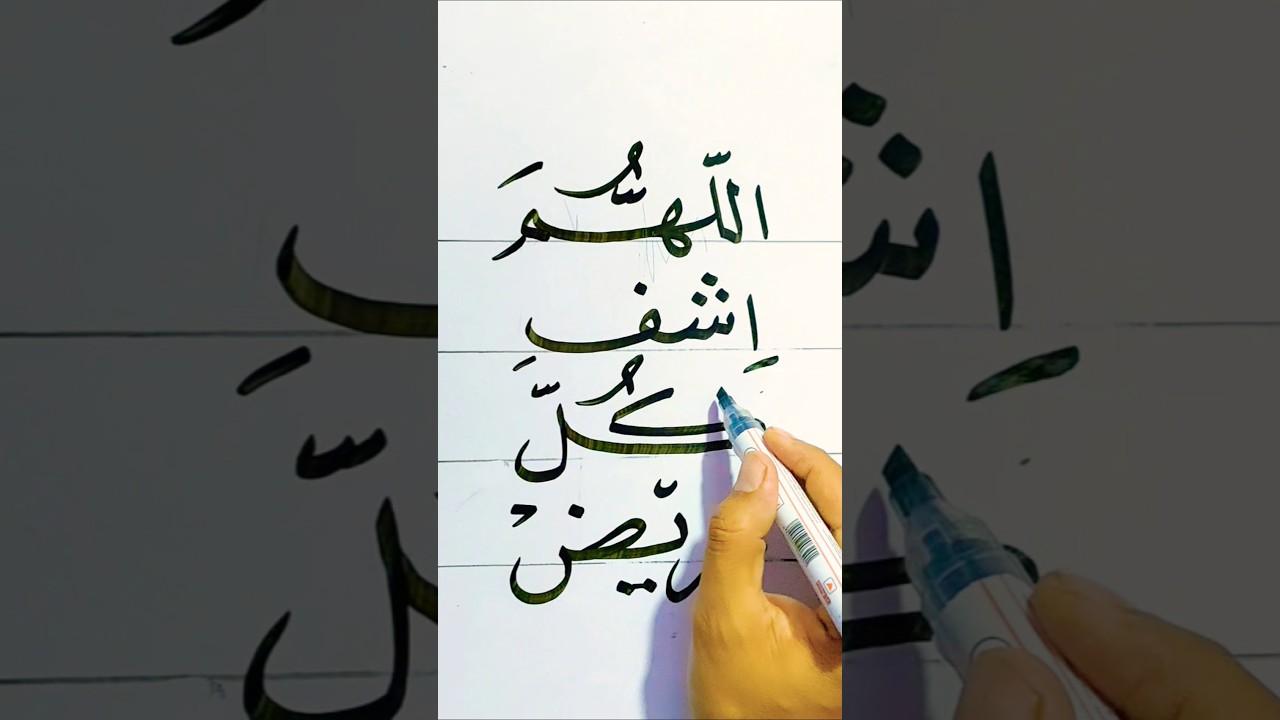 اللّهُمَّ
اِشف
كُلَّ